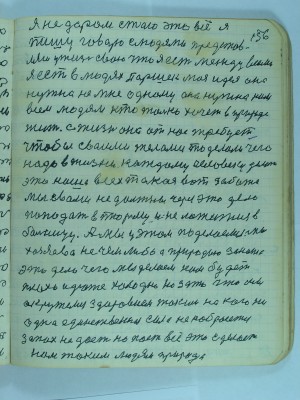 156
Я не даром стало это всё я
пишу говорю с людями представ
ляю жизнь свою что я есть между всеми
я есть в людях Паршек моя идея она
нужна не мне одному она нужна нам
всем людям кто только хочет в природе
жить. а жизнь она от нас требует
чтобы своими делами то делали чего
надо в жизни каждому человеку делать
это наше всех такая вот забота
мы с вами не должны через это дело
попадать в тюрьму и не ложиться в
больницу. А мы в этом поделали мы
хозяева не чем либо а природою заняты
это дело чего мы делаем нам будет
плохо и даже холодно но зато мы сами
окружены здоровьем таким на кого ни
одна единственная сила не набросится
запах не даст но поёт всё это сделает
нам таким людям природа